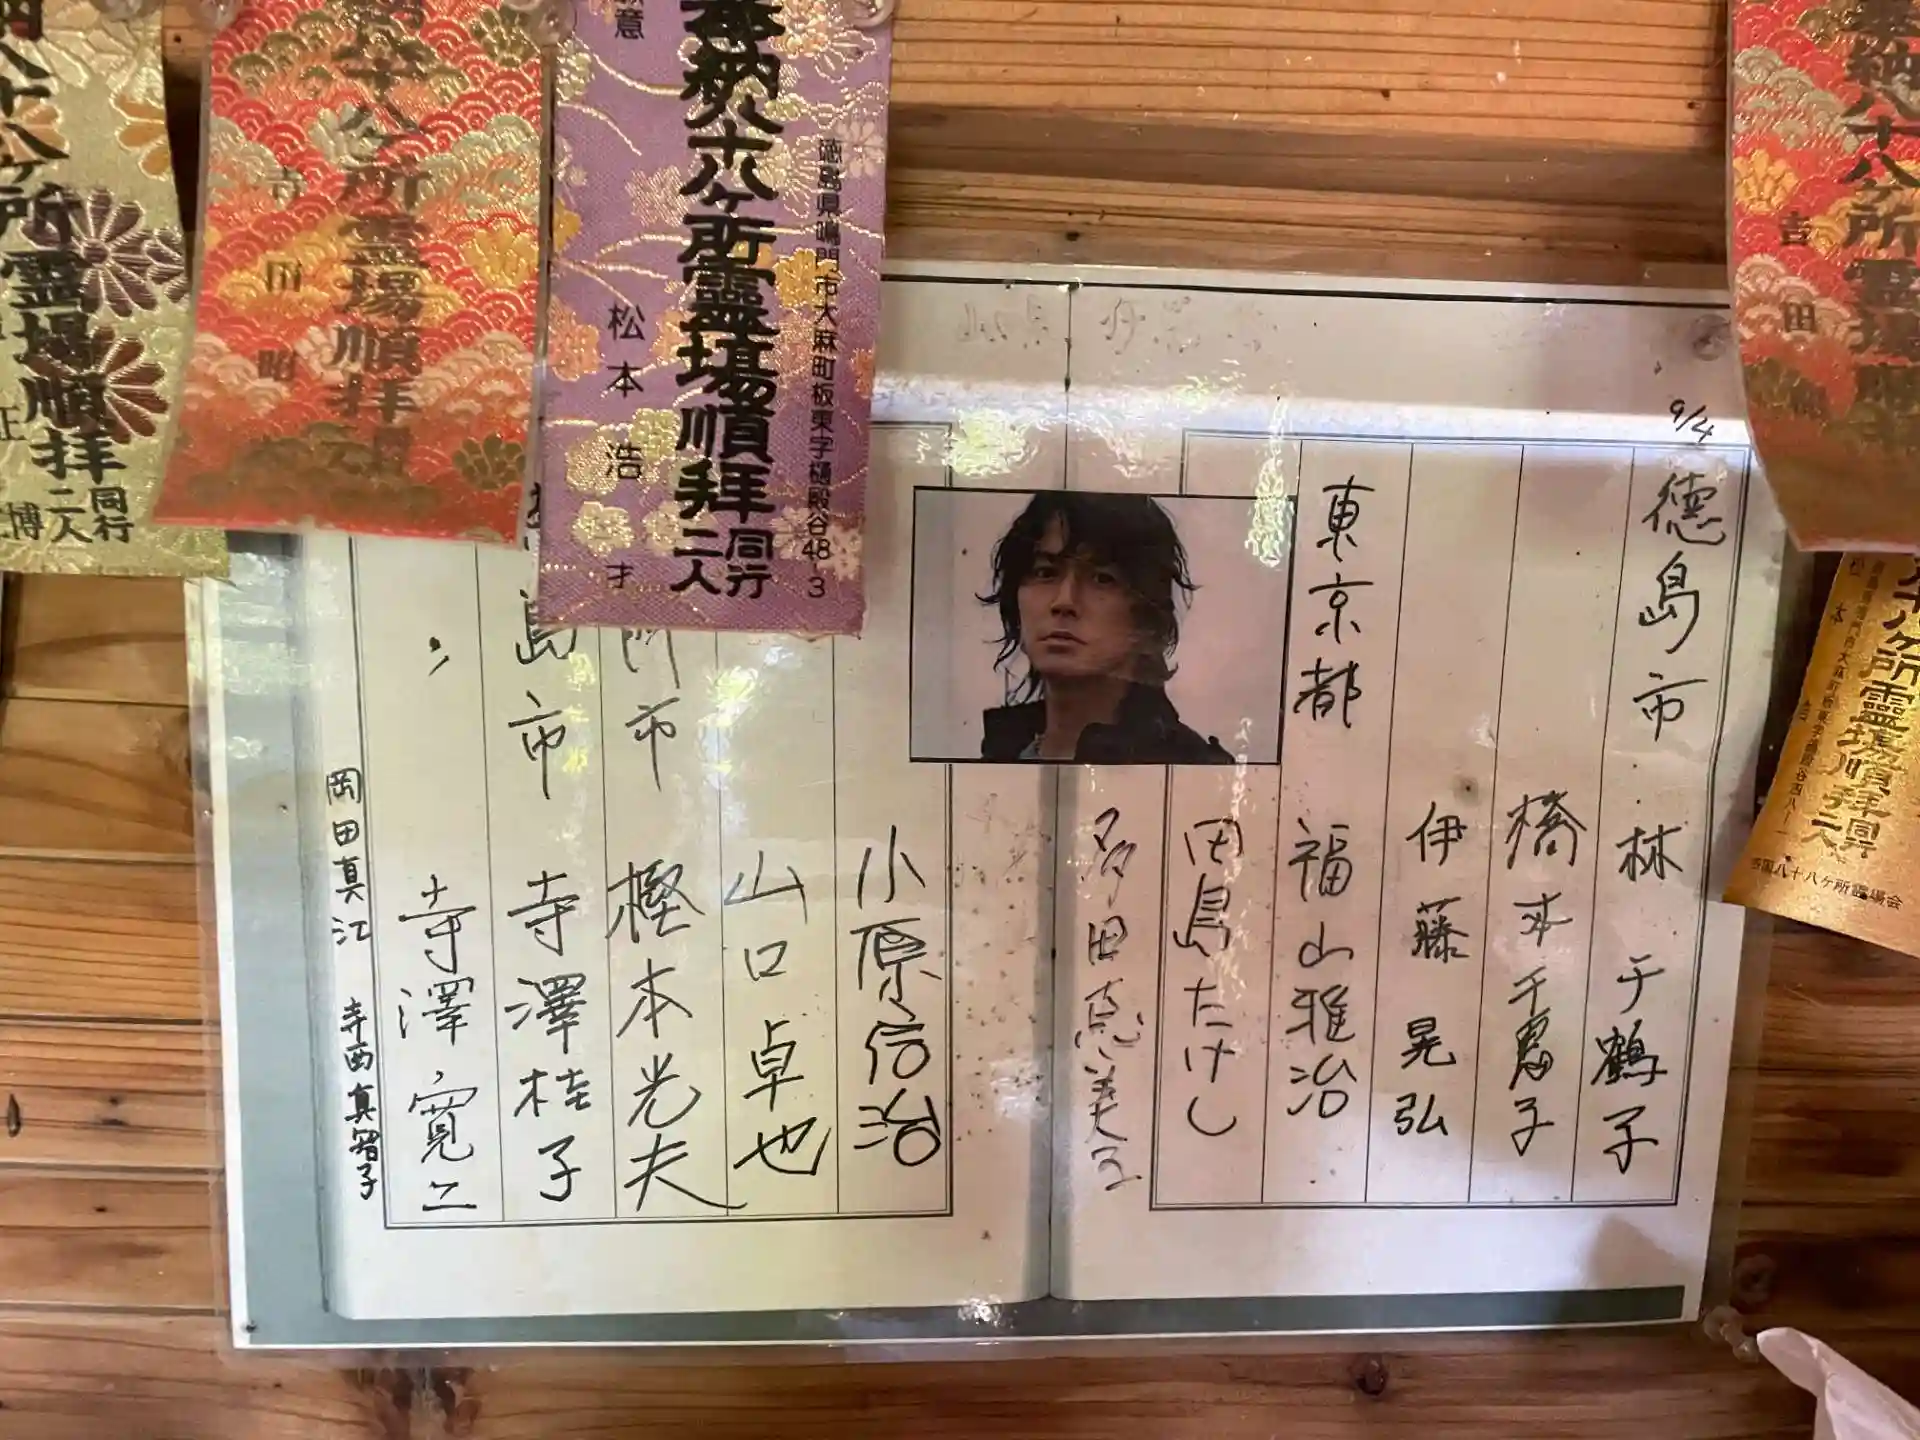 八十八ヶ所霊場順拝
同行二人
博
八十八ヶ所霊場順拝
吉田昭
徳島県鳴門市大麻町板東字樋殿谷48-3
奉納八十八ヶ所霊場順拝
同行二人
松本浩才
奉納八十八ヶ所霊場
吉田
八ヶ所霊場順拝
同行二人
松本
四国八十八ヶ所霊場会
9/4
徳島市 林 千鶴子
橋本千恵子
伊藤晃弘
東京都 福山雅治
田島たけし
多田恵美子
小原信治
山口卓也
市 樫本光夫
島市 寺澤桂子
〃 寺澤寛二
岡田真江 寺西真智子